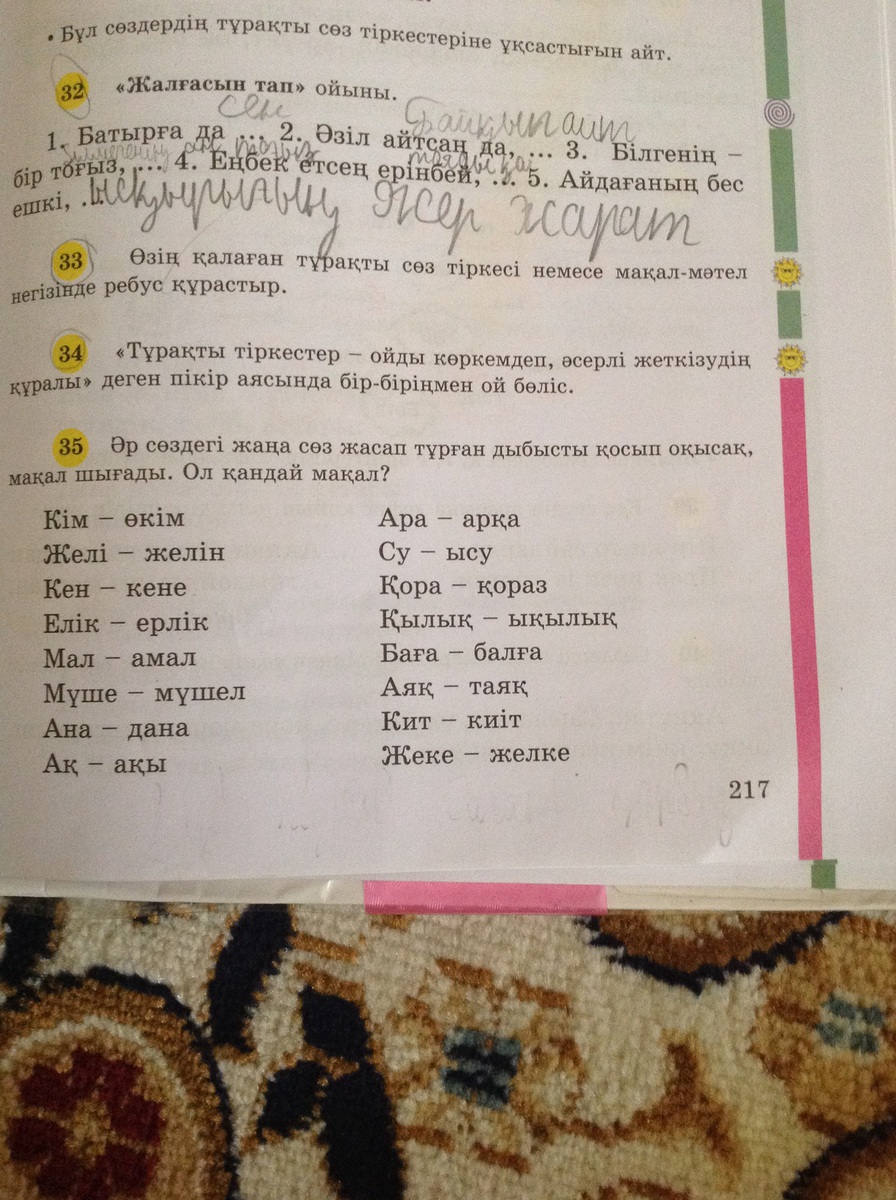 • Бұл сөздердің тұрақты сөз тіркестеріне ұқсастығын айт.
32 «Жалғасын тап» ойыны.
сен байқып айт
1. Батырға да ... 2. Әзіл айтсаң да, ... 3. Білгенің –
білмегенің тоқсан тоғыз тояды қар
бір тоғыз, ... 4. Еңбек етсең ерінбей, ... 5. Айдағаның бес
ешкі, ... ысқырығың жер жарат
33 Өзің қалаған тұрақты сөз тіркесі немесе мақал-мәтел
негізінде ребус құрастыр.
34 «Тұрақты тіркестер – ойды көркемдеп, әсерлі жеткізудің
құралы» деген пікір аясында бір-біріңмен ой бөліс.
35 Әр сөздегі жаңа сөз жасап тұрған дыбысты қосып оқысақ,
мақал шығады. Ол қандай мақал?
Кім – өкім
Желі – желін
Кен – кене
Елік – ерлік
Мал – амал
Мүше – мүшел
Ана – дана
Ақ – ақы
Ара – арқа
Су – ысу
Қора – қораз
Қылық – ықылық
Баға – балға
Аяқ – таяқ
Кит – киіт
Жеке – желке
217